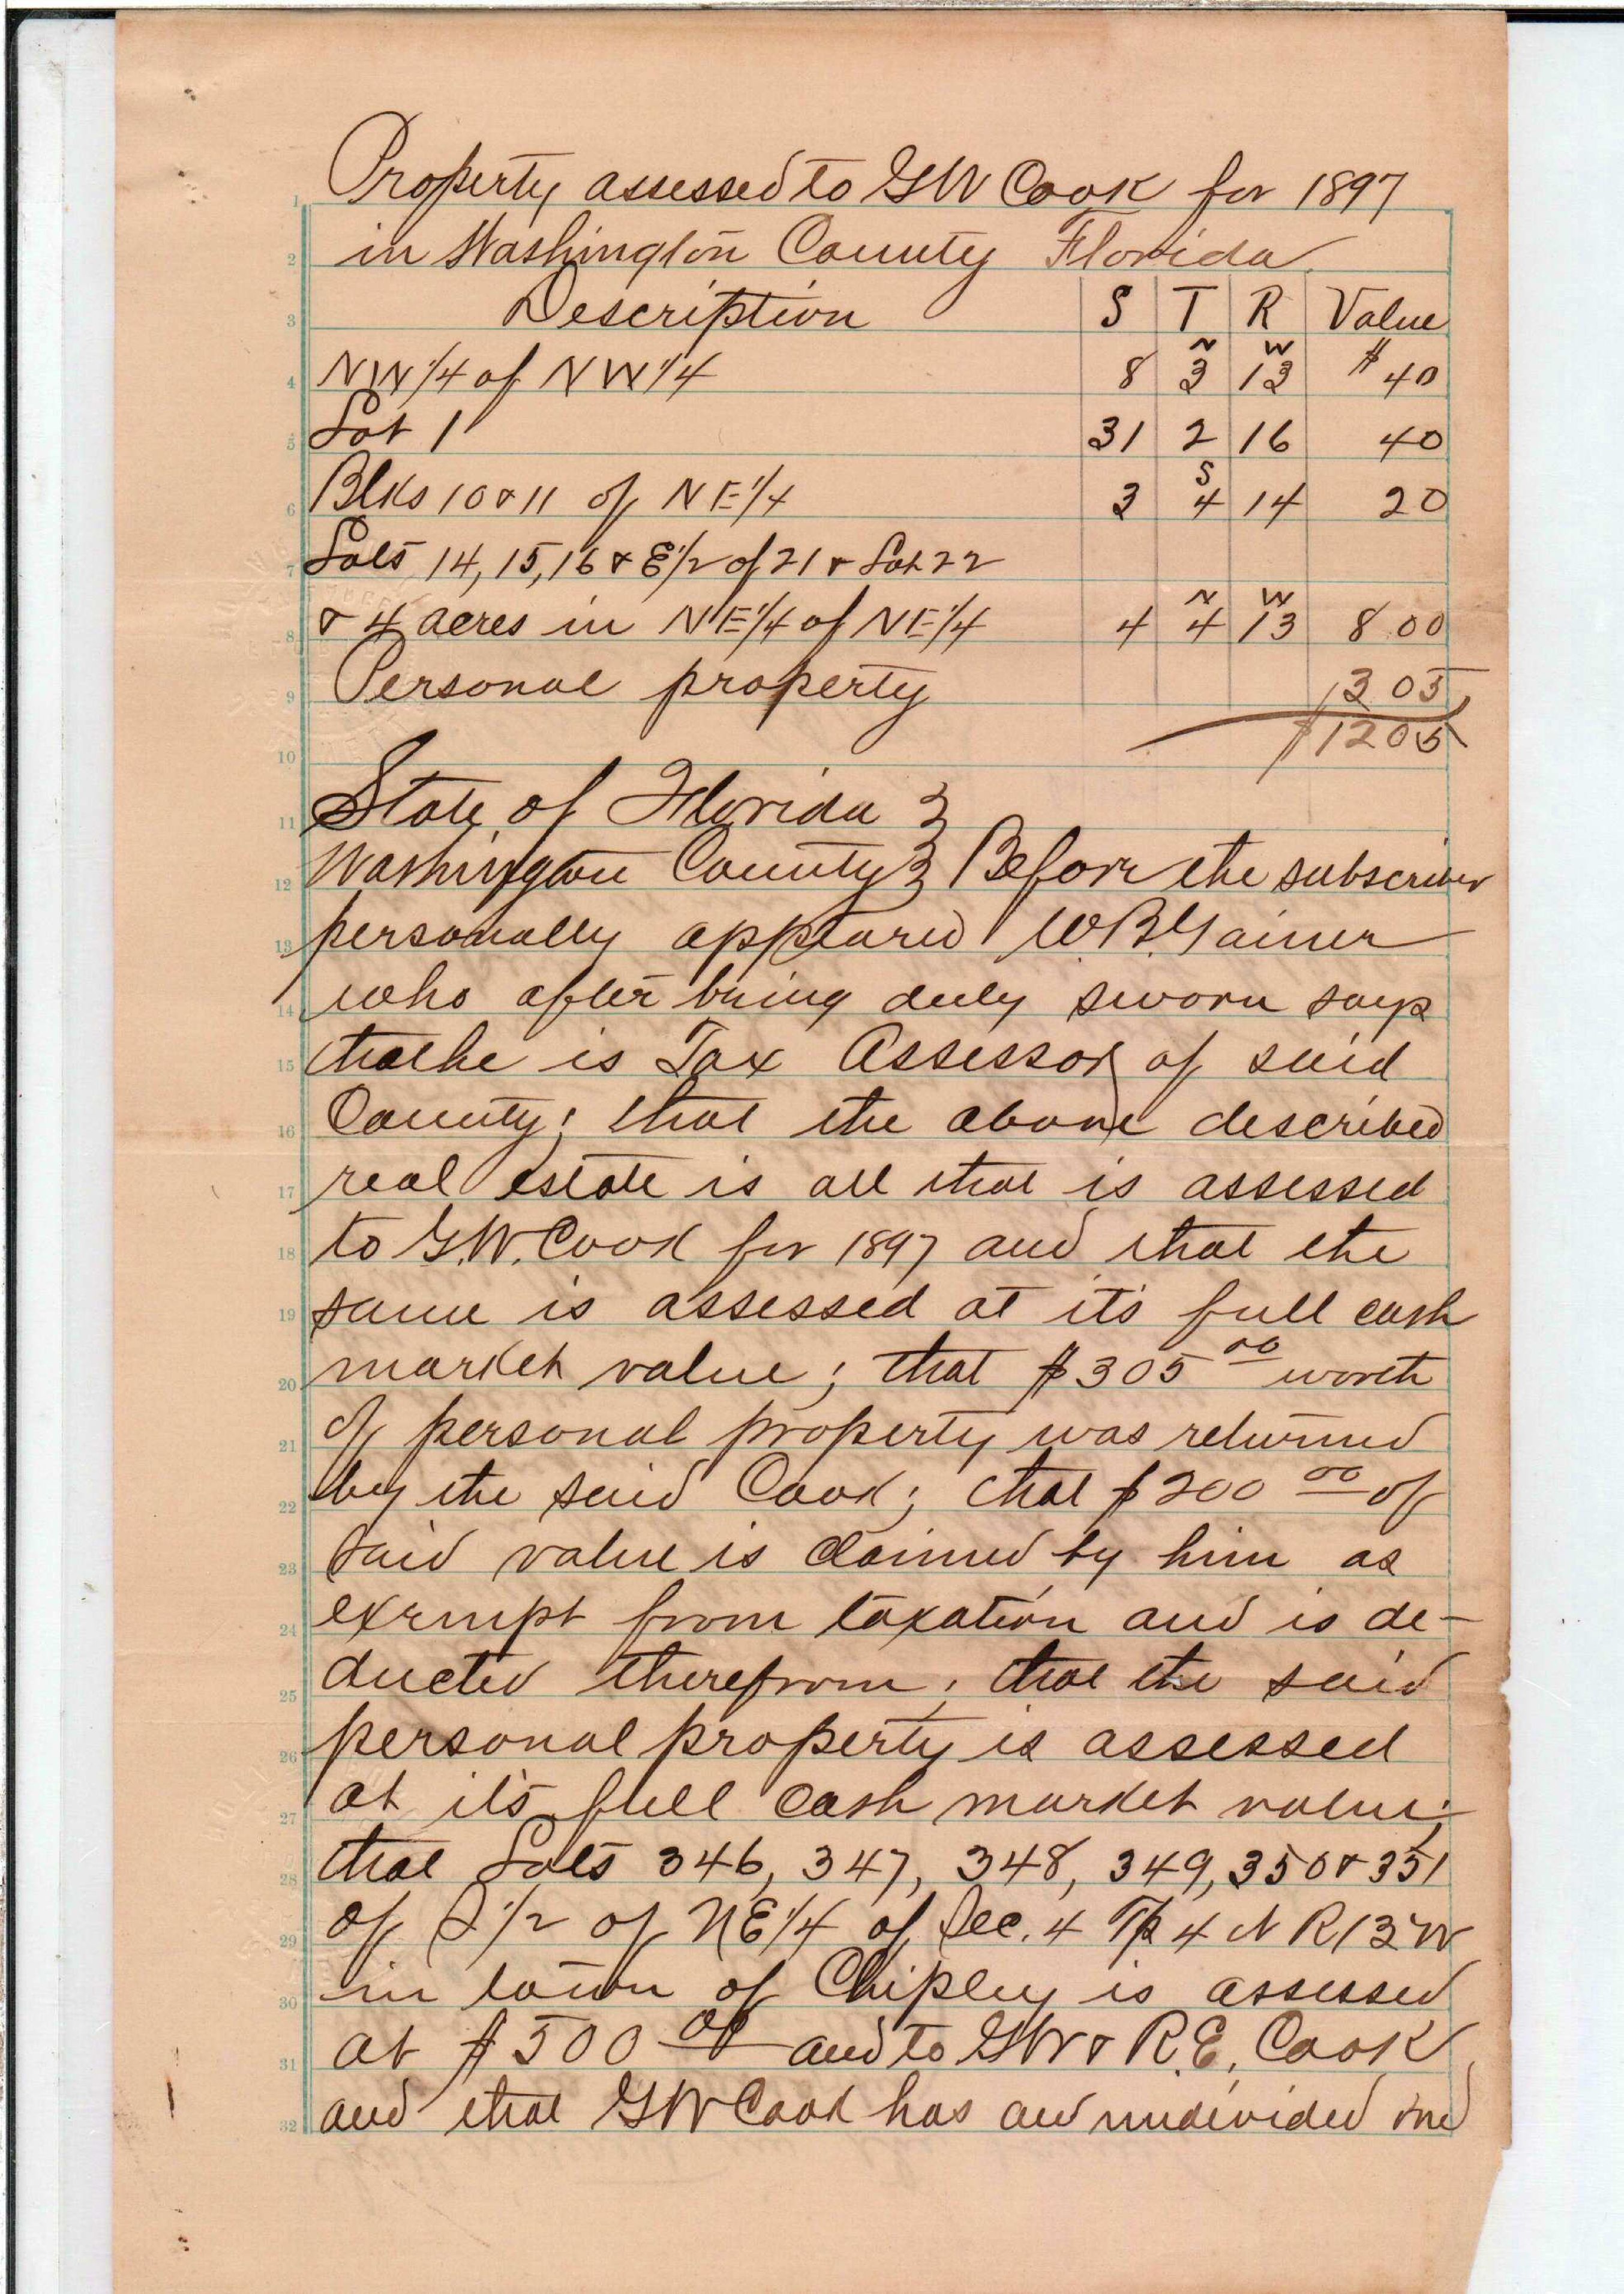 Property assessed to GW Cook for 1897
in Washington County Florida
Description S T R Value
NW 1/4 of NW 1/4 8 N 3 W 13 $40
Lot 1 31 2 16 40
Blks 10 & 11 of NE 1/4 3 S 4 14 20
Lots 14, 15, 16 & E 1/2 of 21 & Lot 22
& 4 acres in NE 1/4 of NE 1/4 4 N 4 W 13 800
Personal property 305
$1205
State of Florida }
Washington County } Before the subscriber
personally appeared W.B. Gainer
who after being duly sworn says
that he is Tax Assessor of said
County; that the above described
real estate is all that is assessed
to G.W. Cook for 1897 and that the
same is assessed at it's full cash
market value; that $305 00 worth
of personal property was returned
by the said Cook; that $200 00 of
said value is claimed by him as
exempt from taxation and is de-
ducted therefrom; that the said
personal property is assessed
at it's full cash market value;
that Lots 346, 347, 348, 349, 350 & 351
of S 1/2 of NE 1/4 of Sec. 4 Tp 4 N R 13 W
in town of Chipley is assessed
at $500 00 and to GW & R.E. Cook
and that GW Cook has an undivided one
1
2
3
4
5
6
7
8
9
10
11
12
13
14
15
16
17
18
19
20
21
22
23
24
25
26
27
28
29
30
31
32